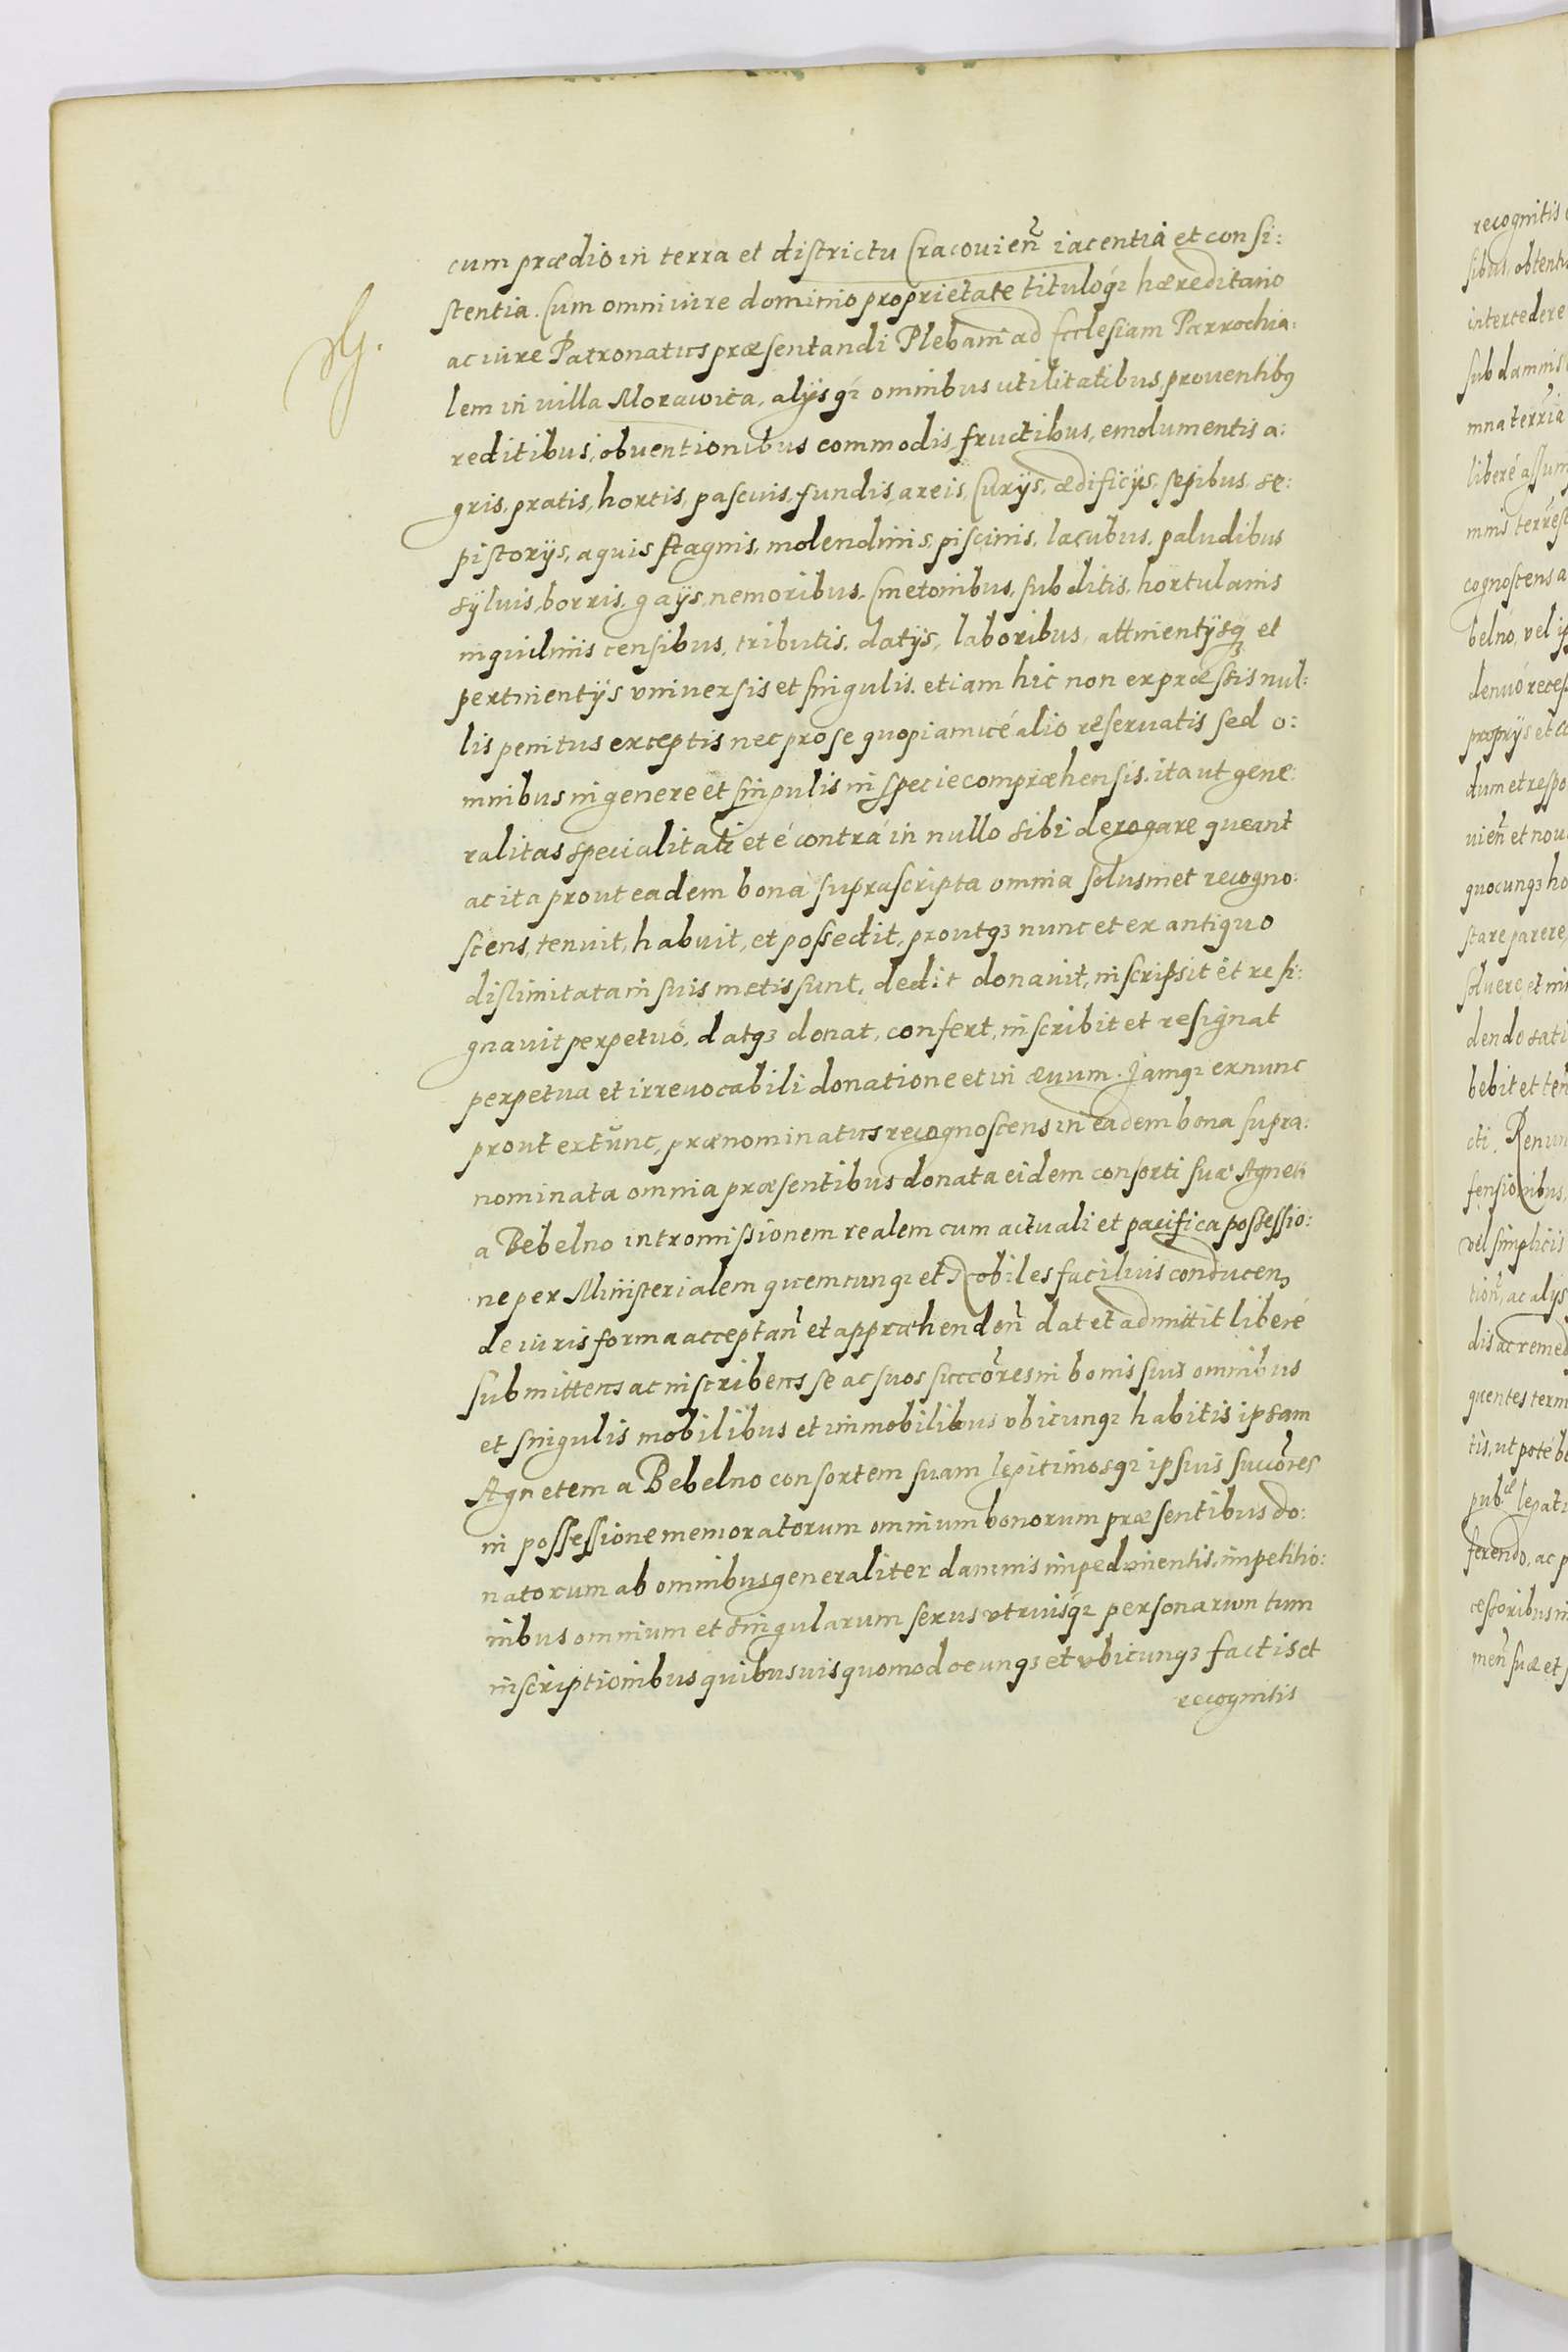 cum prædio in terra et districtu Cracouien̄ iacentia et consi:
stentia. Cum omni iure dominio proprietate tituloq₃ hæreditario
ac iure Patronatus præsentandi Plebani ad Ecclesiam Parrochia:
lem in villa Morawica, alijsq₃ omnibus utilitatibus, prouentibus
reditibus, obuentionibus commodis, fructibus, emolumentis a:
gris, pratis, hortis, pascuis, fundis, areis, Curijs, ædificijs, sepibus se:
pistorijs, aquis stagnis, molendinis, piscinis, lacubus, paludibus
syluis, borris, gays, nemoribus, Cmetonibus, subditis, hortulanis
inquilinis censibus, tributis, datijs, laboribus, attinentijsq₃ et
pertinentijs vniuersis et singulis. etiam hic non expræssis nul:
lis penitus exceptis nec pro se quopiamue alio reseruatis sed o:
mnibus in genere et singulis in specie compræhensis. ita ut gene:
ralitas specialitati et é contrá in nullo sibi derogare queant
ac ita prout eadem bona suprascripta omnia solusmet recogno:
scens, tenuit, habuit, et possedit, proutq₃ nunc et ex antiquo
dislimitata in suis metis sunt. dedit donauit, inscripsit et resi:
gnauit perpetuó, datq₃ donat, confert, inscribit et resignat
perpetua et irreuocabili donatione et in æuum. Iamq₃ ex nunc
prout ex tunc, prænominatus recognoscens in eadem bona supra:
nominata omnia præsentibus donata eidem consorti suæ Agneti
a Bebelno intromissionem realem cum actuali et pacifica possessio:
ne per Ministerialem quemcunq₃ et Nobiles faciliuis conducen₃
de iuris forma acceptan̄ et appræhenden̄ dat et admittit liberé
submittens ac inscribens se ac suos succōres in bonis suis omnibus
et singulis mobilibus et immobilibus vbicunq₃ habitis ipsam
Agnetem a Bebelno consortem suam legitimosq₃ ipsius succōres
in possessione memoratorum omnium bonorum præsentibus do:
natorum ab omnibus generaliter damnis impedimentis, impetitio:
nibus omnium et singularum sexus vtriusq₃ personarum tum
inscriptionibus quibusuis quomodocunq₃ et vbicunq₃ factis et
recognitis
recognitis
sibus, obtentu
intercedere
sub damnis
mna terria
liberé assum
mnis terrest
cognoscens a
belno, vel ip
denuó recess
proprijs et c
dum et respo
uien̄ et nou
quocunq₃ ho
stare parere,
soluere, et mi
dendo sati
bebit et ten̄
cti. Renun
fensionibus,
vel simplicis
tion̄, ac alijs
dis ac remed
quentes term
tis, ut poté b
pub.cæ legati
ferendo, ac p
cessoribus in
men̄ suæ et